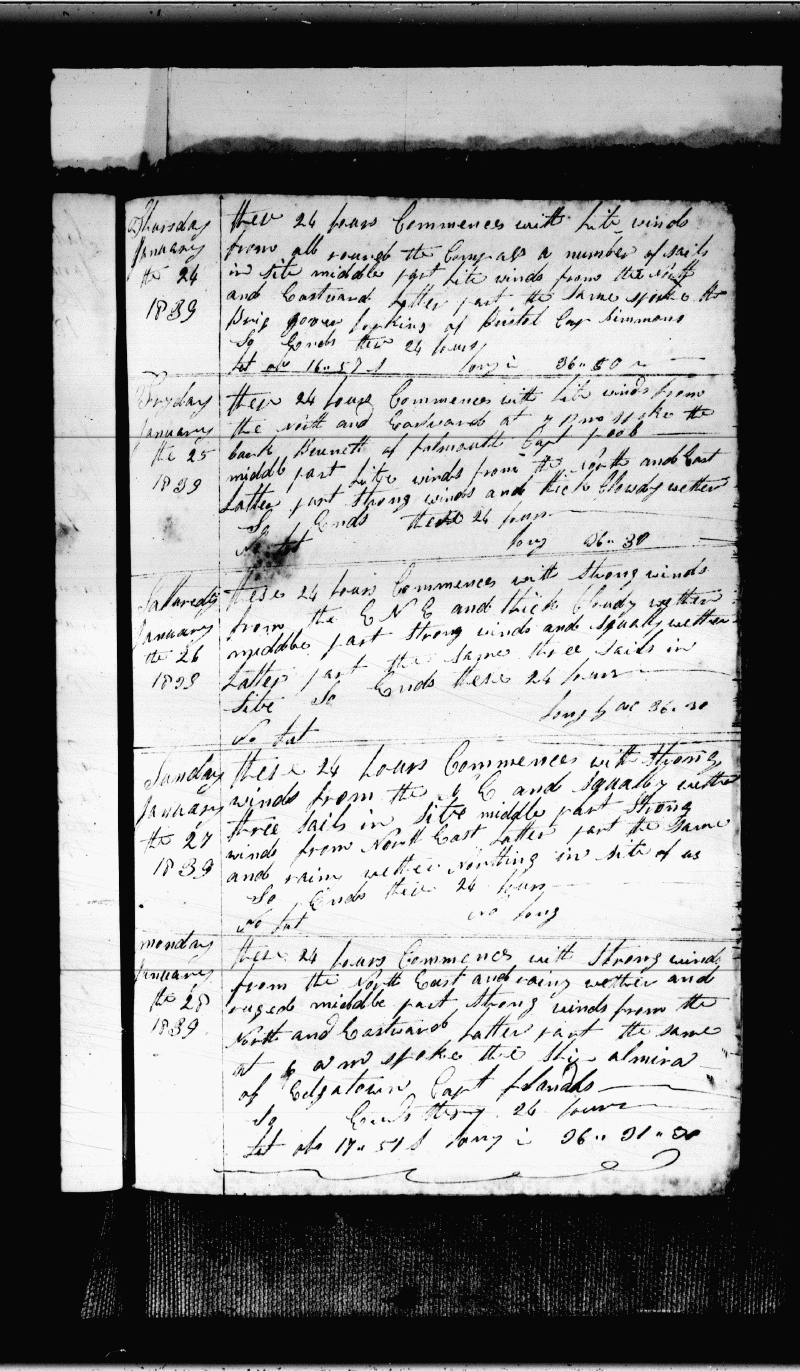 Thursday January the 24 1839
these 24 hours Commences with Lite winds
from all round the Compass a number of sails
in site middle part Lite winds from the North
and Eastward Latter part the same spoke the
Brig of Bristol Cap Simmons
So Ends these 24 hours
Lat ob 16 " 57 S long 36 " 50
Fryday January the 25 1839
these 24 hours Commences with Lite winds from
the North and Eastward at spoke the
bark Bennett of falmouth Capt
middle part Lite winds from the North and East
Latter part Strong winds and thick Clowdy wether
So Ends these 24 hours
No Lat long 36 " 30
January the 26 1839
these 24 hours Commences with Strong winds
from the E N E and thick Cloudy wether
middle part Strong winds and squally wether
Latter part the same three sails in
Site So Ends these 24 hours
No Lat long 36 " 30
Sunday January the 27 1839
these 24 hours Commences with Strong
winds from the E and Squally wether
three sails in Site middle part Strong
winds from North East Latter part the same
and rainy wether Nothing in site of us
So Ends these 24 hours
No Lat No long
monday January the 28 1839
these 24 hours Commences with Strong winds
from the North East and rainy wether and
ruged middle part Strong winds from the
North and Eastward Latter part the same
at a m spoke the Ship almira
of Edgatown Capt
So Ends these 24 hours
Lat ob 17 " 51 S long 36 " 31 " 30